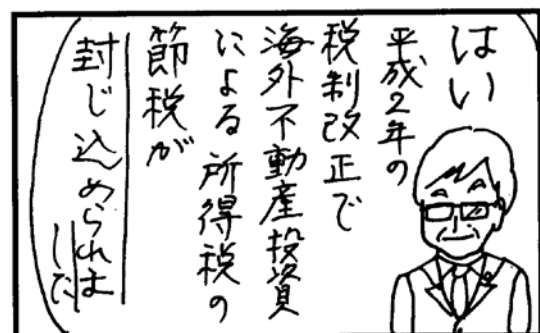 はい
平成2年の
税制改正で
海外不動産投資
による所得税の
節税が
封じ込められま
した